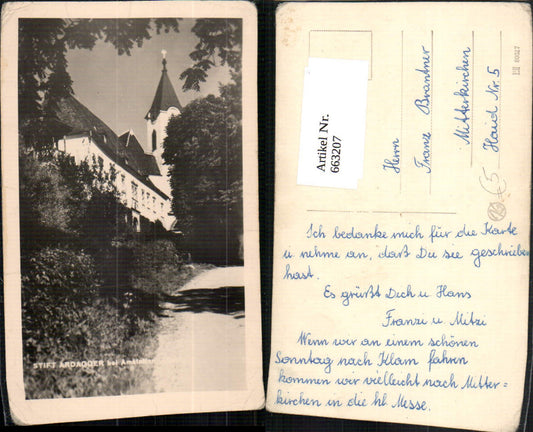 STIFT ARDAGGER bei Amstetten
Artikel Nr.
663207
Herrn
Franz Brantner
Mitterkirchen
Haud Nr. 5
(5
Ich bedanke mich für die Karte
u. nehme an, daß Du sie geschrieben
hast.
Es grüßt Dich u Hans
Franzi u. Mitzi
Wenn wir an einem schönen
Sonntag nach Klam fahren
kommen wir vielleicht nach Mitter=
kirchen in die hl. Messe.